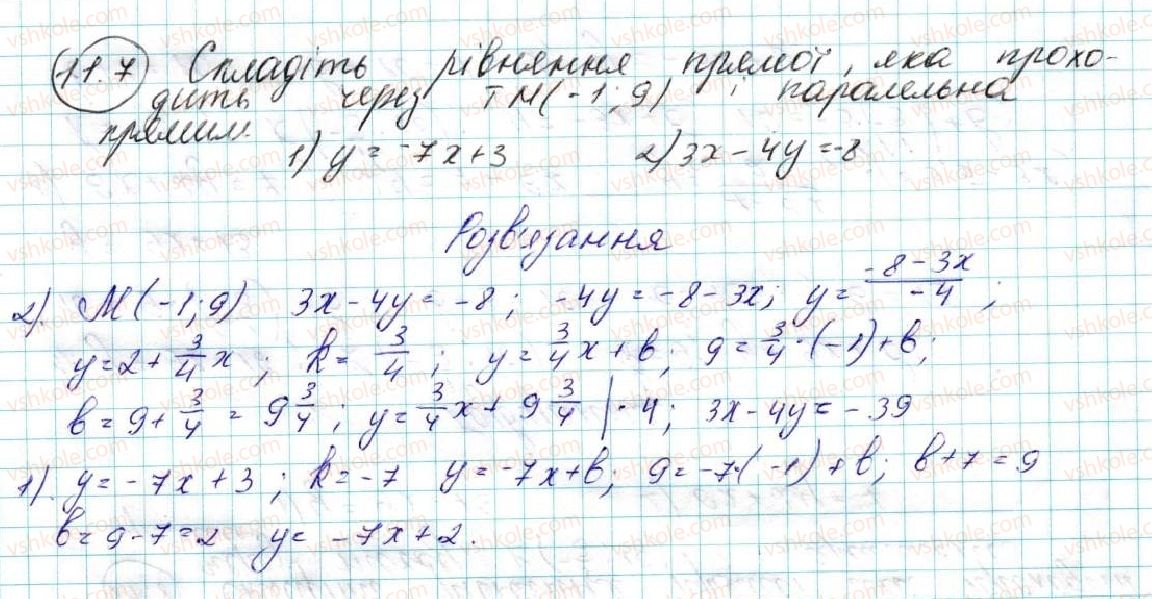 11.7 Складіть рівняння прямої, яка прохо-
дить через т М(-1; 9) і паралельна
прямим.
1) y = -7x+3 2) 3x - 4y = -8
Розв'язання
2). М(-1; 9) 3x - 4y = -8; -4y = -8 - 3x; y = \frac{-8-3x}{-4};
y = 2 + \frac{3}{4}x; k = \frac{3}{4}; y = \frac{3}{4}x + b; 9 = \frac{3}{4}·(-1)+b;
b = 9 + \frac{3}{4} = 9\frac{3}{4}; y = \frac{3}{4}x + 9\frac{3}{4} |·4; 3x - 4y = -39
1). y = -7x + 3; k = -7 y = -7x+b; 9 = -7·(-1)+b; b+7 = 9
b = 9-7 = 2 y = -7x+2.